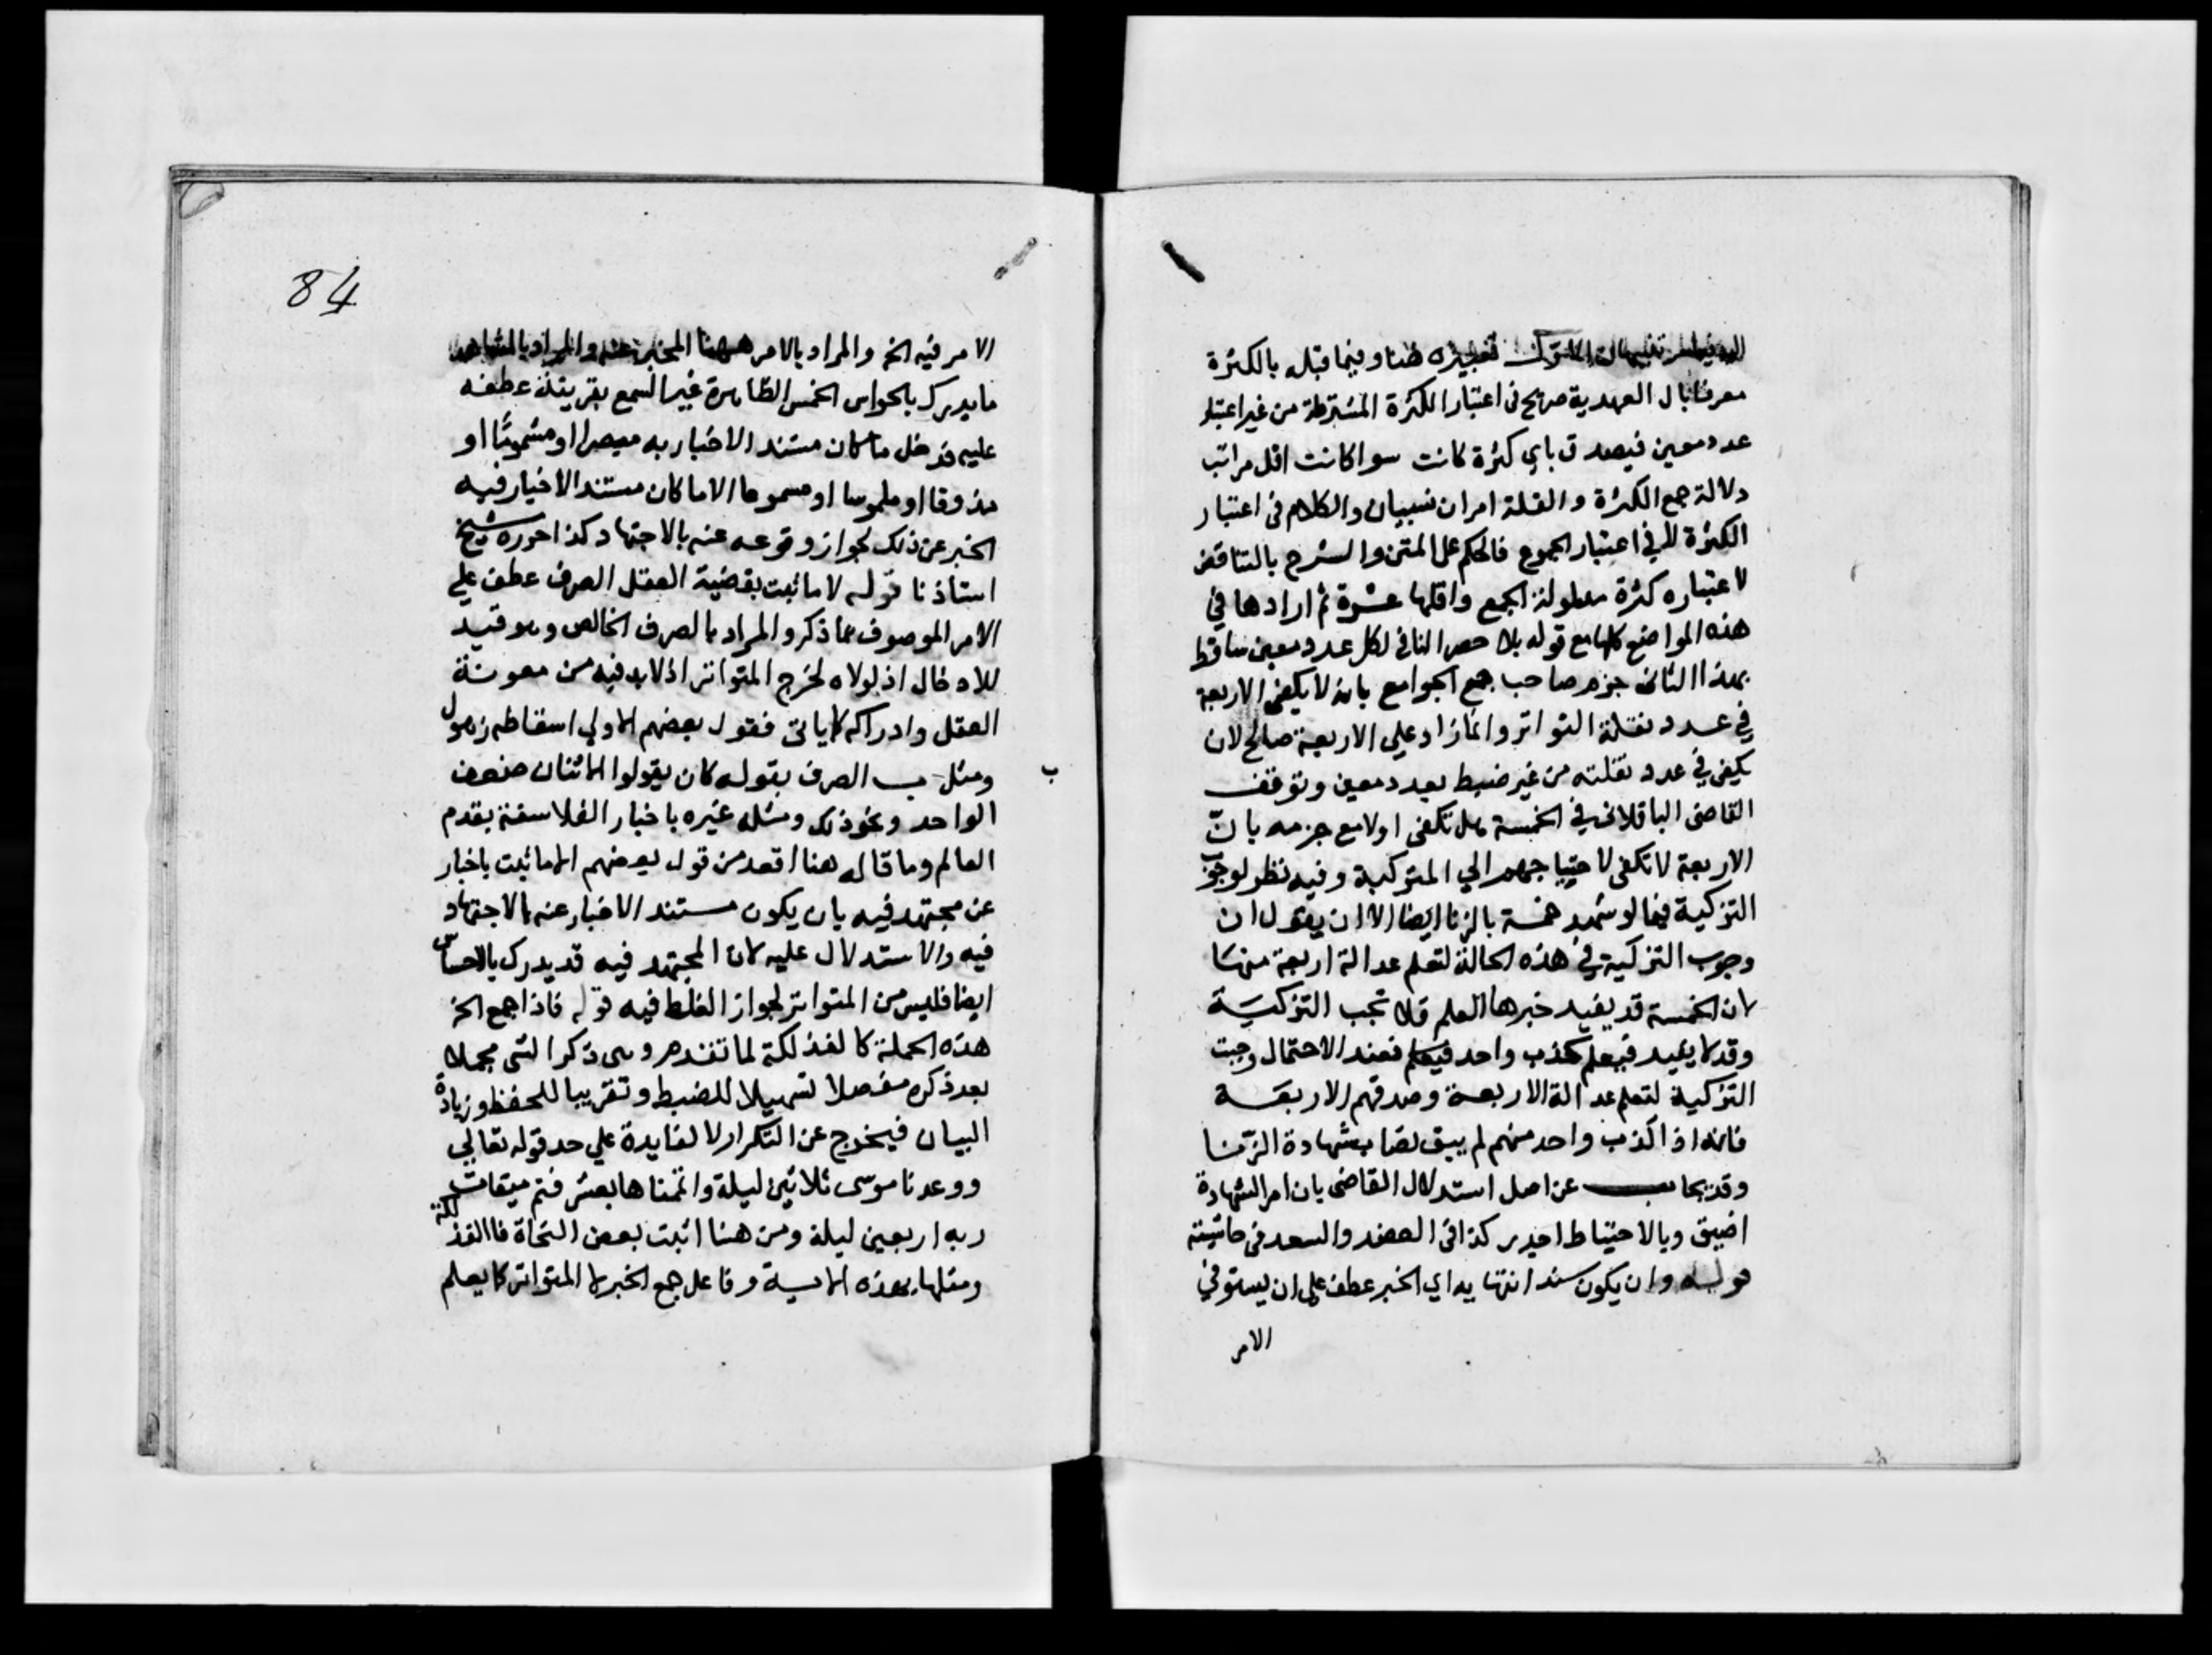 تعبيره هنا وفيما قبله بالكثرة
معرفا بال العهدية صريح فى اعتبار الكثرة المشترطة من غير اعتبار
عدد معين فيصدق باي كثرة كانت سوا كانت اقل مراتب
دلالة جمع الكثرة والقلة امران نسبيان والكلام فى اعتبار
الكثرة لا في اعتبار الجموع فالحكم على المتن والشرح بالتناقض
لاعتباره كثرة مدلولة الجمع واقلها عشرة ثم ارادها في
هذه المواضع كلها مع قوله بلا حصر النافى لكل عدد معين ساقط
بهذا الثانى جزم صاحب جمع الجوامع بانه لا يكفى الاربعة
في عدد نقلة التواتر وانما زاد على الاربعة صالح لان
يكفى في عدد نقلته من غير ضبط بعدد معين وتوقف
القاضى الباقلانى في الخمسة هل تكفى اولا مع جزمه بانّ
الاربعة لا تكفى لاحتياجهم الي التزكية وفيه نظر لوجوب
التزكية فيما لو شهد خمسة بالزنا ايضا الا ان يقول ان
وجوب التزكية في هذه الحالة لتعلم عدالة اربعة منها
لان الخمسة قد يفيد خبرها العلم فلا تجب التزكية
وقد لا يفيد فيعلم كذب واحد فعند الاحتمال وجبت
التزكية لتعلم عدالة الاربعة وصدقهم الاربعة
فانه اذا كذب واحد منهم لم يبق نصاب شهادة الزنا
وقد يجاب عن اصل استدلال القاضى بان امر الشهادة
اضيق وبالاحتياط اجدر كذا فى العضد والسعد فى حاشيته
قوله وان يكون سند انتهايه اي الخبر عطف على ان يستوفي
الامر
84
الامر فيه الخ والمراد بالامر ههنا المخبر عنه والمراد بالمشاهد
ما يدرك بالحواس الخمس الظاهرة غير السمع بقرينة عطفه
عليه فدخل ما كان مستند الاخبار به مبصرا او مشموما او
مذوقا او ملموسا او مسموعا الا ما كان مستند الاخبار فيه
الخبر عن ذلك لجواز وقوعه عنه بالاجتهاد كذا حوره شيخ
استاذنا قوله لا ما ثبت بقضية العقل الصرف عطف علي
الامر الموصوف بما ذكر والمراد بالصرف الخالص وهو قيد
للادخال اذ لولاه لخرج المتواتر اذ لا بد فيه من معونة
العقل وادراكه كما ياتى فقول بعضهم الاولي اسقاطه ذهول
ومثل ب الصرف بقوله كان يقولوا الاثنان ضعف
الواحد ونحو ذلك ومثله غيره باخبار الفلاسفة بقدم
العالم وما قاله هنا اقعد من قول بعضهم الا ما ثبت باخبار
عن مجتهد فيه بان يكون مستند الاخبار عنه بالاجتهاد
فيه والاستدلال عليه لان المجتهد فيه قد يدرك بالاحساس
ايضا فليس من المتواتر لجواز الغلط فيه قوله فاذا جمع الخ
هذه الجملة كالفذلكة لما تقدم وهى ذكر الشى مجملا
بعد ذكره مفصلا تسهيلا للضبط وتقريبا للحفظ وزيادة
البيان فيخرج عن التكرار لا لفايدة علي حد قوله تعالي
ووعدنا موسى ثلاثين ليلة واتممناها بعشر فتم ميقات
ربه اربعين ليلة ومن هنا اثبت بعض النحاة فا الفذلكة
ومثلها بهذه الاية وفاعل جمع الخبر لا المتواتر كما يعلم
ب